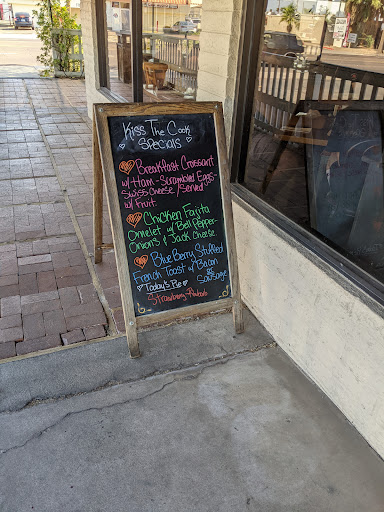 Kiss The Cook
Specials
Breakfast Croissant
w/ Ham - Scrambled Eggs-
Swiss Cheese / Served
w/ Fruit.
Chicken Fajita
Omelet w/ Bell Pepper-
Onions & Jack Cheese
Blue Berry Stuffed
French Toast w/ Bacon
or Sausage
Today's Pie
Strawberry-Rhubarb